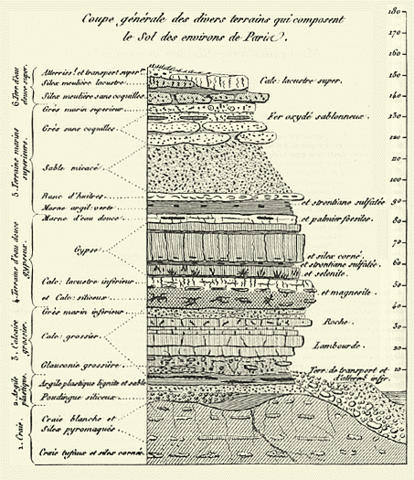 Coupe générale des divers terrains qui composent
le Sol des environs de Paris.
180
170
160
150
140
130
120
110
100
90
80
70
60
50
40
30
20
10
Atterriss.t et transport super.r
Silex meulière lacustre
Silex meulière sans coquilles
Calc. lacustre super.
Grès marin superieur
Fer oxydé sablonneux.
Grès sans coquilles
Sable micacé
Banc d'huitres
Marne argil. verte
et strontiane sulfatée
Marne d'eau douce
et palmier fossiles.
Gypse
et silex corné
et strontiane sulfatée
et selenite.
Calc. lacustre inférieur
et Calc. siliceux
et magnesite.
Grès marin inférieur
Roche.
Calc. grossier
Lambourde.
Glauconie grossière
Terr. de transport et
Argile plastique lignite et sable
Poudingue siliceux
Craie blanche et
Silex pyromaques
Craie tufau et silex cornés
5. Terrains marins
superieurs.
4. Terrains d'eau douce
3. Calcaire
grossier.
2. Argile
plastique.
1. Craie.